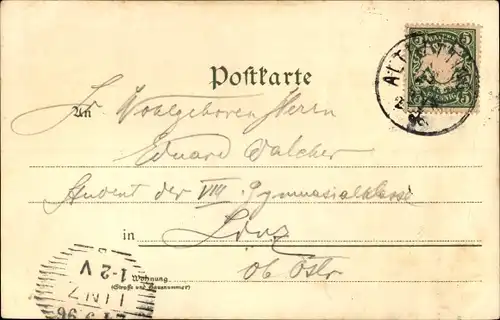 5 5
ALT
96
Postkarte
An Sr Wohlgeboren Herrn
Eduard Dalcher
Student der VIII. Gymnasialklasse
in Linz
Ob. Östr
Wohnung
(Straße und Hausnummer)
1-2 V
LINZ
9 96